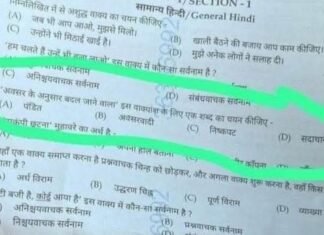 SECTION - 1
सामान्य हिन्दी/General Hindi
निम्नलिखित में से अशुद्ध वाक्य का चयन कीजिए
(A) जब भी आप आओ, मुझसे मिलो।
(B) खाली बैठने की बजाय आप काम कीजिए।
(C) उन्होंने भी मिठाई खाई है।
(D) मुझे अनेक लोगों ने सलाह दी।
'हम चलते हैं उन्हें भी बुला लाओ' इस वाक्य में कौन-सा सर्वनाम है ?
वाचक सर्वनाम
(C) अनिश्चयवाचक सर्वनाम
(D) संबंधवाचक सर्वनाम
'अवसर के अनुसार बदल जाने वाला' इस वाक्यांश के लिए एक शब्द का चयन कीजिए -
(A) पंडित
(B) अवसरवादी
(C) निष्कपट
(D) सदाचा
छूटना' मुहावरे का अर्थ है -
(B) अपना होल बताना
काँपना
हाँ एक वाक्य समाप्त करना है प्रश्नवाचक चिन्ह को छोड़कर, और अगला वाक्य शुरू करना है, वहाँ किस
ाता है ?
अर्ध विराम
(B) उद्धरण चिह्न
(C) पूर्ण विराम
(D) व्याख्या
टी बजी है, कोई आया है' इस वाक्य में कौन-सा सर्वनाम है ?
निश्चयवाचक सर्वनाम
अनिश्चयवाचक सर्वनाम
(B) प्रश्नवाचक सर्वनाम